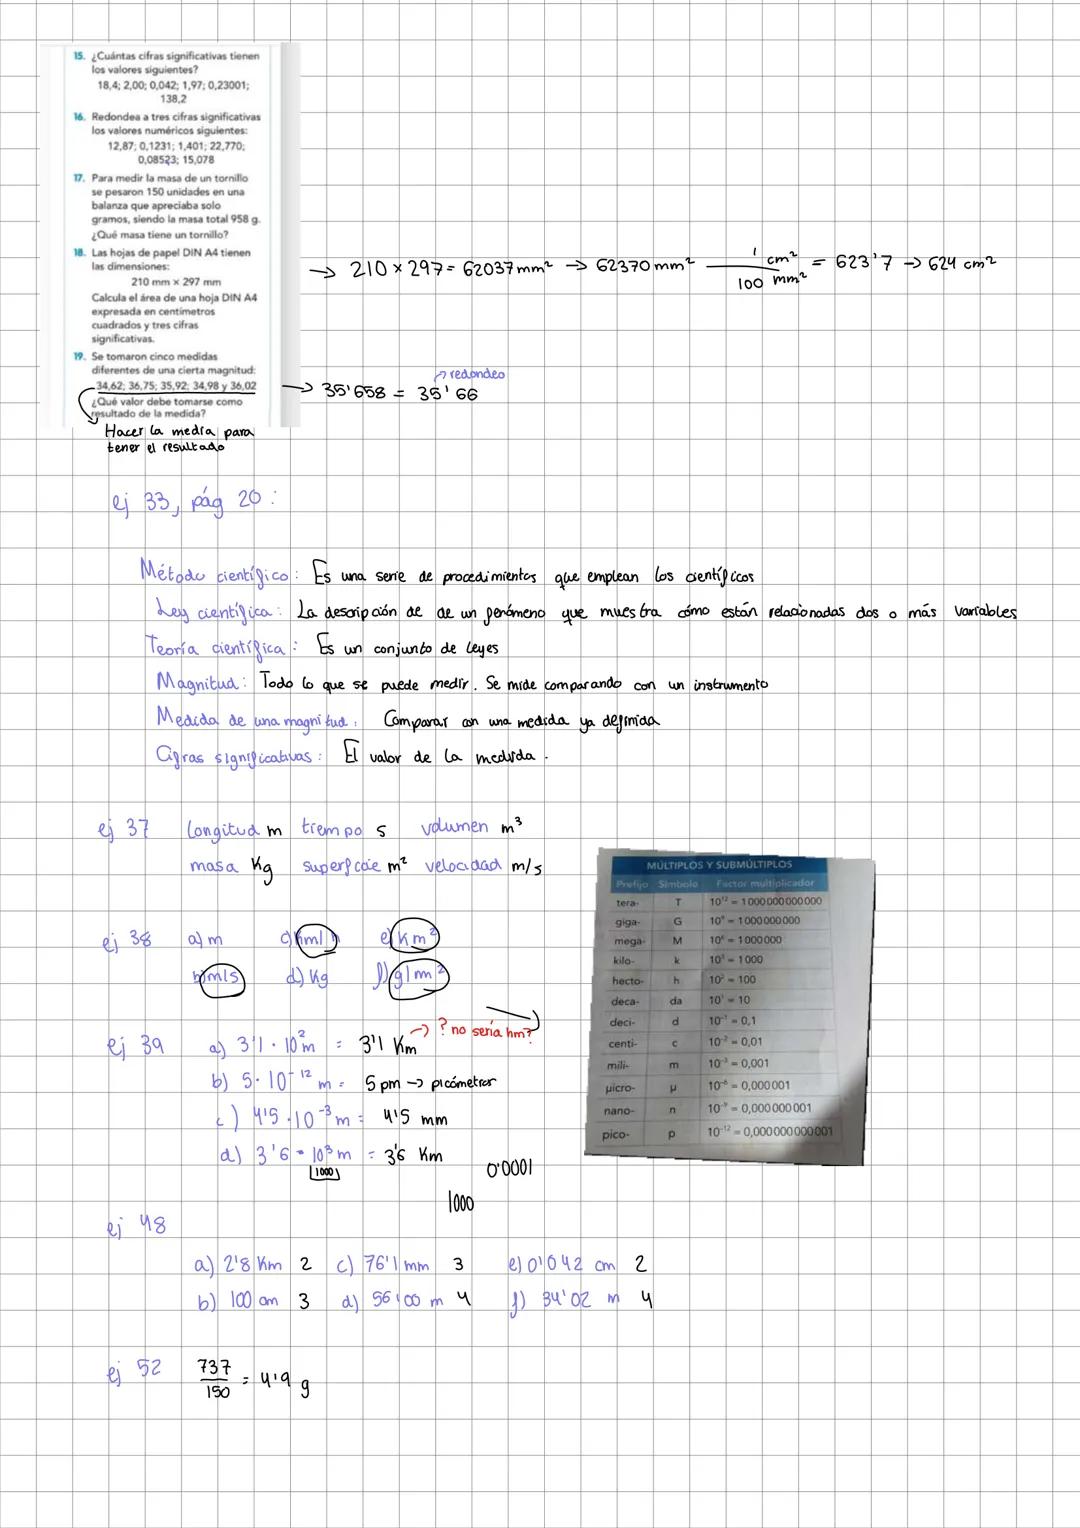 15. ¿Cuántas cifras significativas tienen
los valores siguientes?
18,4; 2,00; 0,042; 1,97; 0,23001;
138,2
16. Redondea a tres cifras significativas
los valores numéricos siguientes:
12,87; 0,1231; 1,401; 22,770;
0,08523; 15,078
17. Para medir la masa de un tornillo
se pesaron 150 unidades en una
balanza que apreciaba solo
gramos, siendo la masa total 958 g.
¿Qué masa tiene un tornillo?
18. Las hojas de papel DIN A4 tienen
las dimensiones:
210 mm × 297 mm
Calcula el área de una hoja DIN A4
expresada en centímetros
cuadrados y tres cifras
significativas.
→ 210 × 297 = 62037 mm² → 62370 mm² 1 cm² / 100 mm² = 623'7 → 624 cm²
19. Se tomaron cinco medidas
diferentes de una cierta magnitud:
34,62; 36,75; 35,92; 34,98 y 36,02
¿Qué valor debe tomarse como
resultado de la medida?
→ redondeo
→ 35'658 = 35'66
Hacer la media para
tener el resultado
ej 33, pág 20:
Método científico: Es una serie de procedimientos que emplean los científicos
Ley científica: La descripción de de un fenómeno que muestra cómo están relacionadas dos o más variables
Teoría científica: Es un conjunto de leyes
Magnitud: Todo lo que se puede medir. Se mide comparando con un instrumento
Medida de una magnitud: Comparar con una medida ya definida
Cifras significativas: El valor de la medida.
ej 37 longitud m tiempo s volumen m³
masa Kg superficie m² velocidad m/s
ej 38 a) m c) km/h e) Km²
b) m/s d) Kg f) g/m²
ej 39 a) 3'1 · 10² m = 3'1 Km → ? no sería hm?
b) 5 · 10⁻¹² m = 5 pm → picómetror
c) 4'5 · 10⁻³ m = 4'5 mm
d) 3'6 · 10³ m = 3'6 Km
1000
0'0001
1000
MÚLTIPLOS Y SUBMÚLTIPLOS
Prefijo Símbolo Factor multiplicador
tera- T 10¹² = 1 000 000 000 000
giga- G 10⁹ = 1 000 000 000
mega- M 10⁶ = 1 000 000
kilo- k 10³ = 1 000
hecto- h 10² = 100
deca- da 10¹ = 10
deci- d 10⁻¹ = 0,1
centi- c 10⁻² = 0,01
mili- m 10⁻³ = 0,001
micro- µ 10⁻⁶ = 0,000 001
nano- n 10⁻⁹ = 0,000 000 001
pico- p 10⁻¹² = 0,000 000 000 001
ej 48
a) 2'8 Km 2 c) 76'1 mm 3 e) 0'042 cm 2
b) 100 cm 3 d) 56'00 m 4 f) 34'02 m 4
ej 52 737 / 150 = 4'9 g